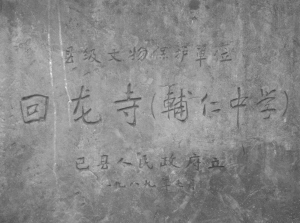 县级文物保护单位
回龙寺(輔仁中学)
巴县人民政府立
一九八九年七月